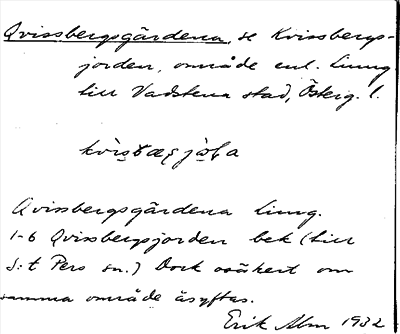 Qvissbergsgärdena, se Kvissbergs-
jorden, område enl. Ljung
till Vadstena stad, Österg. l.
Qvissbergsgärdena Ljung.
1-6 Qvissbergsjorden bek (till
S:t Pers sn.) Dock osäkert om
samma område åsyftas.
Erik Alm 1932